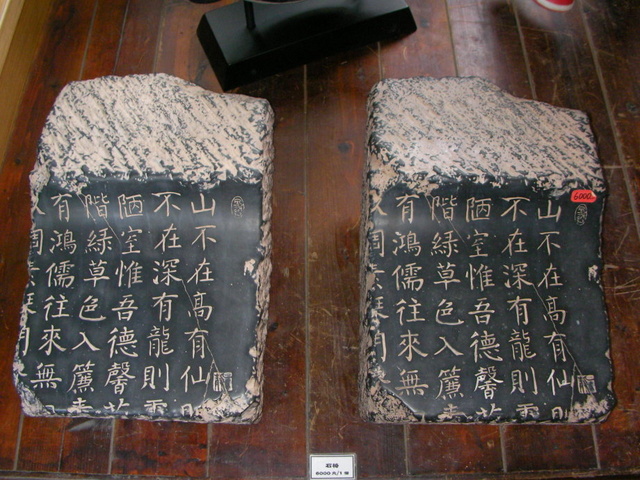 山不在高有仙則
不在深有龍則
陋室惟吾德馨
階綠草色入簾青
有鴻儒往來無
山不在高有仙則
不在深有龍則
陋室惟吾德馨
階綠草色入簾青
有鴻儒往來無
6000